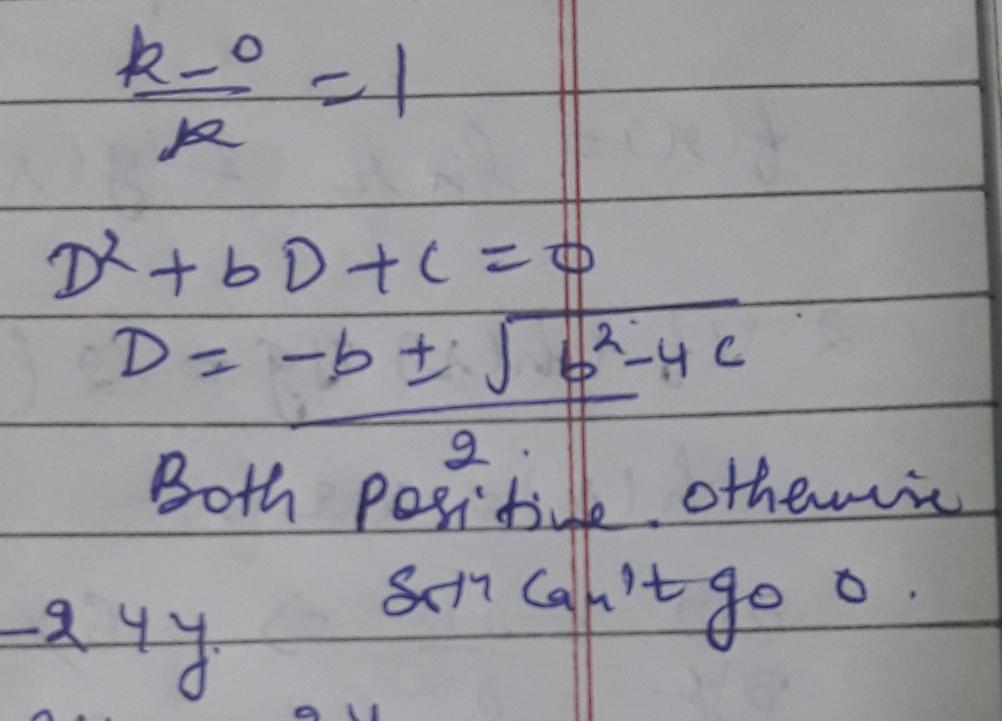 k-0 = 1
k
D² + bD + C = 0
D = -b ± √b²-4C
2
Both positive. otherwise
Solⁿ can't go 0.
-2 4y.